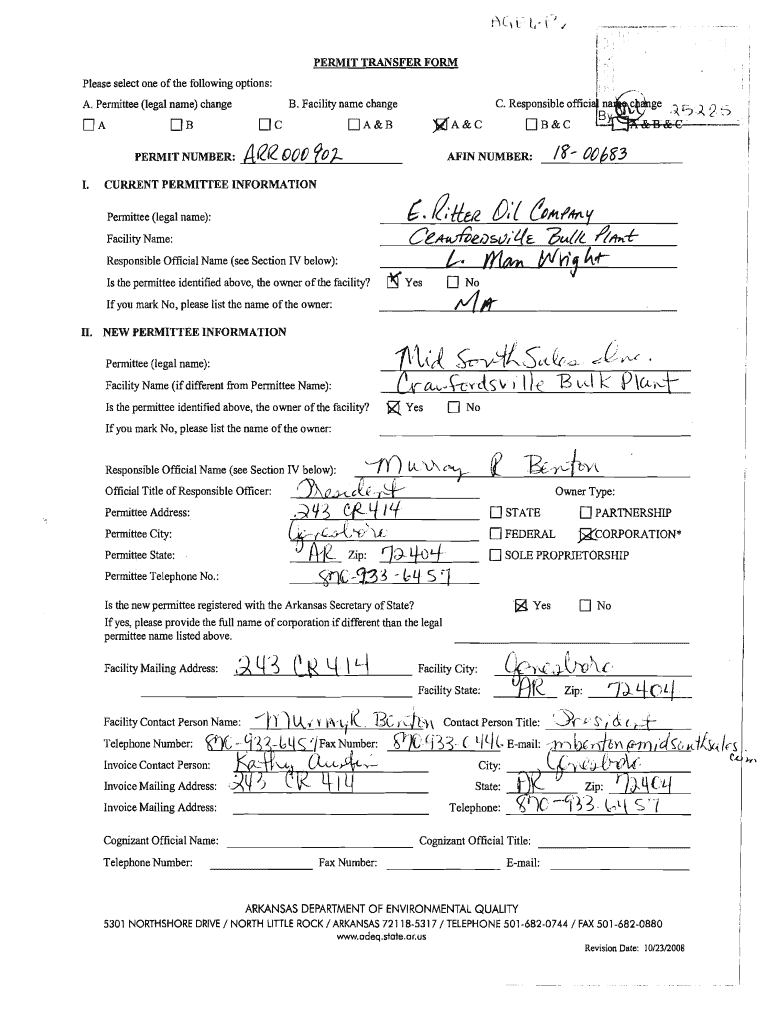 PERMIT TRANSFER FORM
Please select one of the following options:
A. Permittee (legal name) change B. Facility name change C. Responsible official name change 25225
By
A B C A & B A & C B & C A & B & C
PERMIT NUMBER: ARR000902 AFIN NUMBER: 18-00683
I. CURRENT PERMITTEE INFORMATION
Permittee (legal name): E. Ritter Oil Company
Facility Name: Crawfordsville Bulk Plant
Responsible Official Name (see Section IV below): L. Man Wright
Is the permittee identified above, the owner of the facility? Yes No
If you mark No, please list the name of the owner: NA
II. NEW PERMITTEE INFORMATION
Permittee (legal name): Mid South Sales Inc.
Facility Name (if different from Permittee Name): Crawfordsville Bulk Plant
Is the permittee identified above, the owner of the facility? Yes No
If you mark No, please list the name of the owner:
Responsible Official Name (see Section IV below): Murray R Benton
Official Title of Responsible Officer: President Owner Type:
Permittee Address: 243 CR 414 STATE PARTNERSHIP
Permittee City: Jonesboro FEDERAL CORPORATION*
Permittee State: AR Zip: 72404 SOLE PROPRIETORSHIP
Permittee Telephone No.: 870-933-6457
Is the new permittee registered with the Arkansas Secretary of State? Yes No
If yes, please provide the full name of corporation if different than the legal
permittee name listed above.
Facility Mailing Address: 243 CR 414 Facility City: Jonesboro
Facility State: AR Zip: 72404
Facility Contact Person Name: Murray R. Benton Contact Person Title: President
Telephone Number: 870-933-6457 Fax Number: 870 933-6446 E-mail: mbenton@midsouthsales.
com
Invoice Contact Person: Kathy Austin City: Jonesboro
Invoice Mailing Address: 243 CR 414 State: AR Zip: 72404
Invoice Mailing Address: Telephone: 870-933-6457
Cognizant Official Name: Cognizant Official Title:
Telephone Number: Fax Number: E-mail:
ARKANSAS DEPARTMENT OF ENVIRONMENTAL QUALITY
5301 NORTHSHORE DRIVE / NORTH LITTLE ROCK / ARKANSAS 72118-5317 / TELEPHONE 501-682-0744 / FAX 501-682-0880
www.adeq.state.ar.us
Revision Date: 10/23/2008